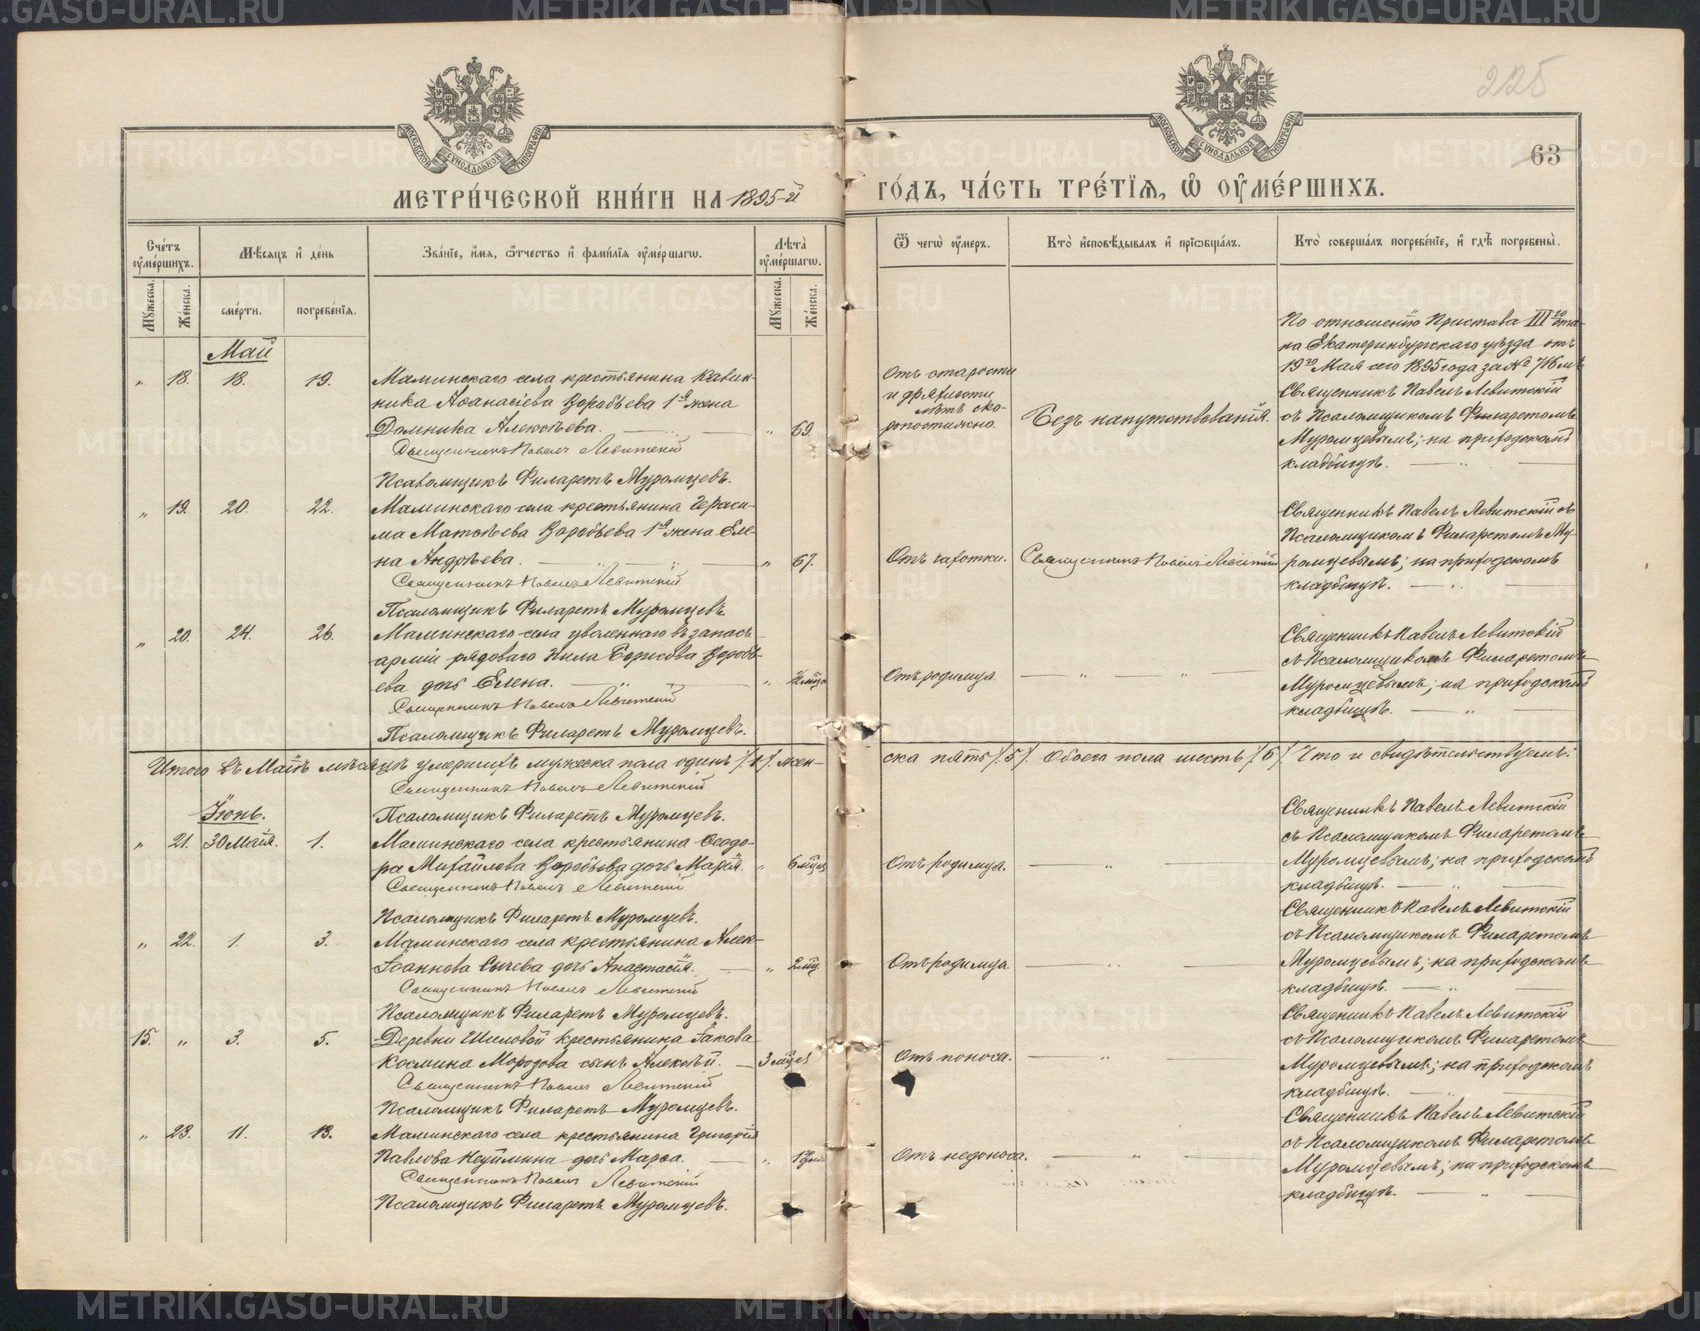 225
63
МЕТРИ́ЧЕСКОЙ КНИ́ГИ НА 1895-й
ГО́ДЪ, ЧА́СТЬ ТРЕ́ТІЯ, Ѡ҆ ОУ҆МЕ́РШИХЪ.
Сче́тъ оу҆ме́ршихъ.
Мꙋ́жеска.
Же́нска.
Мѣ́сяцъ и҆ де́нь
сме́рти.
погребе́нія.
Зва́ніе, и҆́мя, ѻ҆́тчество и҆ фами́лія оу҆ме́ршагѡ.
Лѣ́та оу҆ме́ршагѡ.
Мꙋ́жеска.
Же́нска.
Ѿ чегѡ̀ оу҆́меръ.
Кто̀ и҆сповѣ́дывалъ и҆ прїѡбща́лъ.
Кто̀ соверша́лъ погребе́ніе, и҆ гдѣ̀ погребены̀.
Май
„ 18. 18. 19.
Маминскаго села крестьянина Кавин-
ника Аѳанасіева Воробьева 1ая жена
Домника Алексѣева. „ 69
Священникъ Павелъ Левитскій
Псаломщикъ Филаретъ Муромцевъ.
Отъ старости
и дряхлости
лѣтъ ско-
ропостижно.
Безъ напутствованія.
По отношенію Пристава III го ста-
на Екатеринбургскаго уѣзда отъ
19го Мая сего 1895 года за № 716мъ
Священникъ Павелъ Левитскій
съ Псаломщикомъ Филаретомъ
Муромцевымъ; на приходскомъ
кладбищѣ.
„ 19. 20. 22.
Маминскаго села крестьянина Гераси-
ма Матвѣева Воробьева 1ая жена Еле-
на Андрѣева. „ 67.
Священникъ Павелъ Левитскій
Псаломщикъ Филаретъ Муромцевъ.
Отъ чахотки.
Священникъ Павелъ Левитскій
Священникъ Павелъ Левитскій съ
Псаломщикомъ Филаретомъ Му-
ромцевымъ; на приходскомъ
кладбищѣ.
„ 20. 24. 26.
Маминскаго села уволеннаго въ запасъ
арміи рядоваго Нила Борисова Воробь-
ева дочь Елена. „
Священникъ Павелъ Левитскій
Псаломщикъ Филаретъ Муромцевъ.
Отъ родимца
„ „
Священникъ Павелъ Левитскій
съ Псаломщикомъ Филаретомъ
Муромцевымъ; на приходскомъ
кладбищѣ.
Итого въ Маѣ мѣсяцѣ умершихъ мужеска пола одинъ /1/ жен-
ска пять /5/. Обоего пола шесть /6/. Что и свидѣтельствуемъ:
Священникъ Павелъ Левитскій
Псаломщикъ Филаретъ Муромцевъ.
Іюнь.
„ 21. 30 Мая. 1.
Маминскаго села крестьянина Ѳеодо-
ра Михайлова Воробьева дочь Марія. „ 6 мцев
Священникъ Павелъ Левитскій
Псаломщикъ Филаретъ Муромцевъ.
Отъ родимца.
„
Священникъ Павелъ Левитскій
съ Псаломщикомъ Филаретомъ
Муромцевымъ; на приходскомъ
кладбищѣ.
„ 22. 1. 3.
Маминскаго села крестьянина Алек-
Іоаннова Сычева дочь Анастасія. „ 2 мц.
Священникъ Павелъ Левитскій
Псаломщикъ Филаретъ Муромцевъ.
Отъ родимца
„
Священникъ Павелъ Левитскій
съ Псаломщикомъ Филаретомъ
Муромцевымъ; на приходскомъ
кладбищѣ.
15. „ 3. 5.
Деревни Шиловой крестьянина Іакова
Космина Мородова сынъ Алексѣй. 3 мцев
Священникъ Павелъ Левитскій
Псаломщикъ Филаретъ Муромцевъ.
Отъ поноса.
„
Священникъ Павелъ Левитскій
съ Псаломщикомъ Филаретомъ
Муромцевымъ; на приходскомъ
кладбищѣ.
„ 23. 11. 13.
Маминскаго села крестьянина Григорія
Павлова Неуймина дочь Марѳа. „
Священникъ Павелъ Левитскій
Псаломщикъ Филаретъ Муромцевъ.
Отъ недоноса.
„
Священникъ Павелъ Левитскій
съ Псаломщикомъ Филаретомъ
Муромцевымъ; на приходскомъ
кладбищѣ.
METRIKI.GASO-URAL.RU